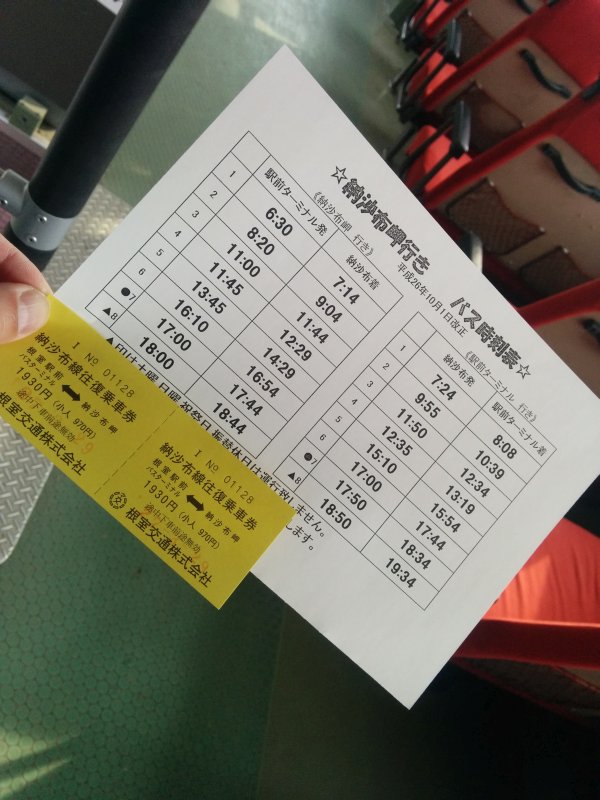 ☆納沙布岬行き バス時刻表☆
平成26年10月1日改正
《納沙布岬 行き》
駅前ターミナル発 納沙布着
1 6:30 7:14
2 8:20 9:04
3 11:00 11:44
4 11:45 12:29
5 13:45 14:29
6 16:10 16:54
●7 17:00 17:44
▲8 18:00 18:44
《駅前ターミナル 行き》
納沙布発 駅前ターミナル着
1 7:24 8:08
2 9:55 10:39
3 11:50 12:34
4 12:35 13:19
5 15:10 15:54
6 17:00 17:44
●7 17:50 18:34
▲8 18:50 19:34
▲印は土曜日曜祝祭日振替休日は運行致しません。
します。
I No 01128
納沙布線往復乗車券
根室駅前バスターミナル ⬌ 納沙布岬
1930円(小人 970円)
途中下車前途無効
根室交通株式会社
I No 01128
納沙布線往復乗車券
根室駅前バスターミナル ⬌ 納沙布岬
1930円(小人 970円)
途中下車前途無効
根室交通株式会社